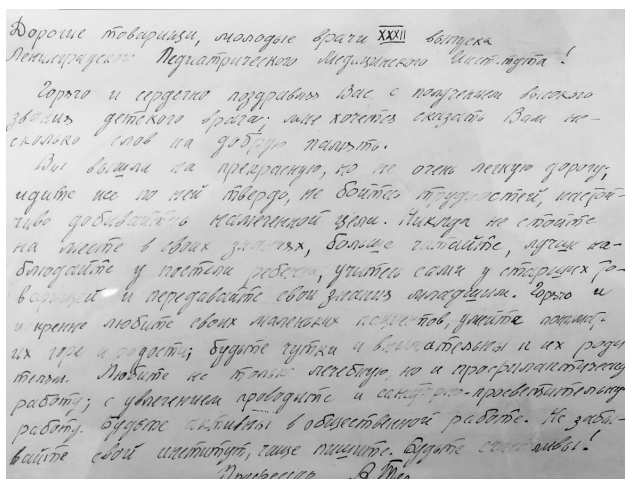 Дорогие товарищи, молодые врачи XXXII выпуска
Ленинградского Педиатрического Медицинского Института!
Горячо и сердечно поздравляя Вас с получением высокого
звания детского врача; мне хочется сказать Вам не-
сколько слов на добрую память.
Вы вышли на прекрасную, но не очень легкую дорогу,
идите же по ней твердо, не бойтесь трудностей, настой-
чиво добивайтесь намеченной цели. Никогда не стойте
на месте в своих знаниях, больше читайте, лучше на-
блюдайте у постели ребенка, учитесь сами у старших то-
варищей и передавайте свои знания младшим. Горячо и
искренне любите своих маленьких пациентов, умейте понимать
их горе и радости; будьте чутки и внимательны и их роди
телям. Любите не только лечебную, но и профилактическую
работу; с увлечением проводите и санитарно-просветительную
работу. Будьте активны в общественной работе. Не забы-
вайте свой институт, чаще пишите. Будьте счастливы!
Профессор